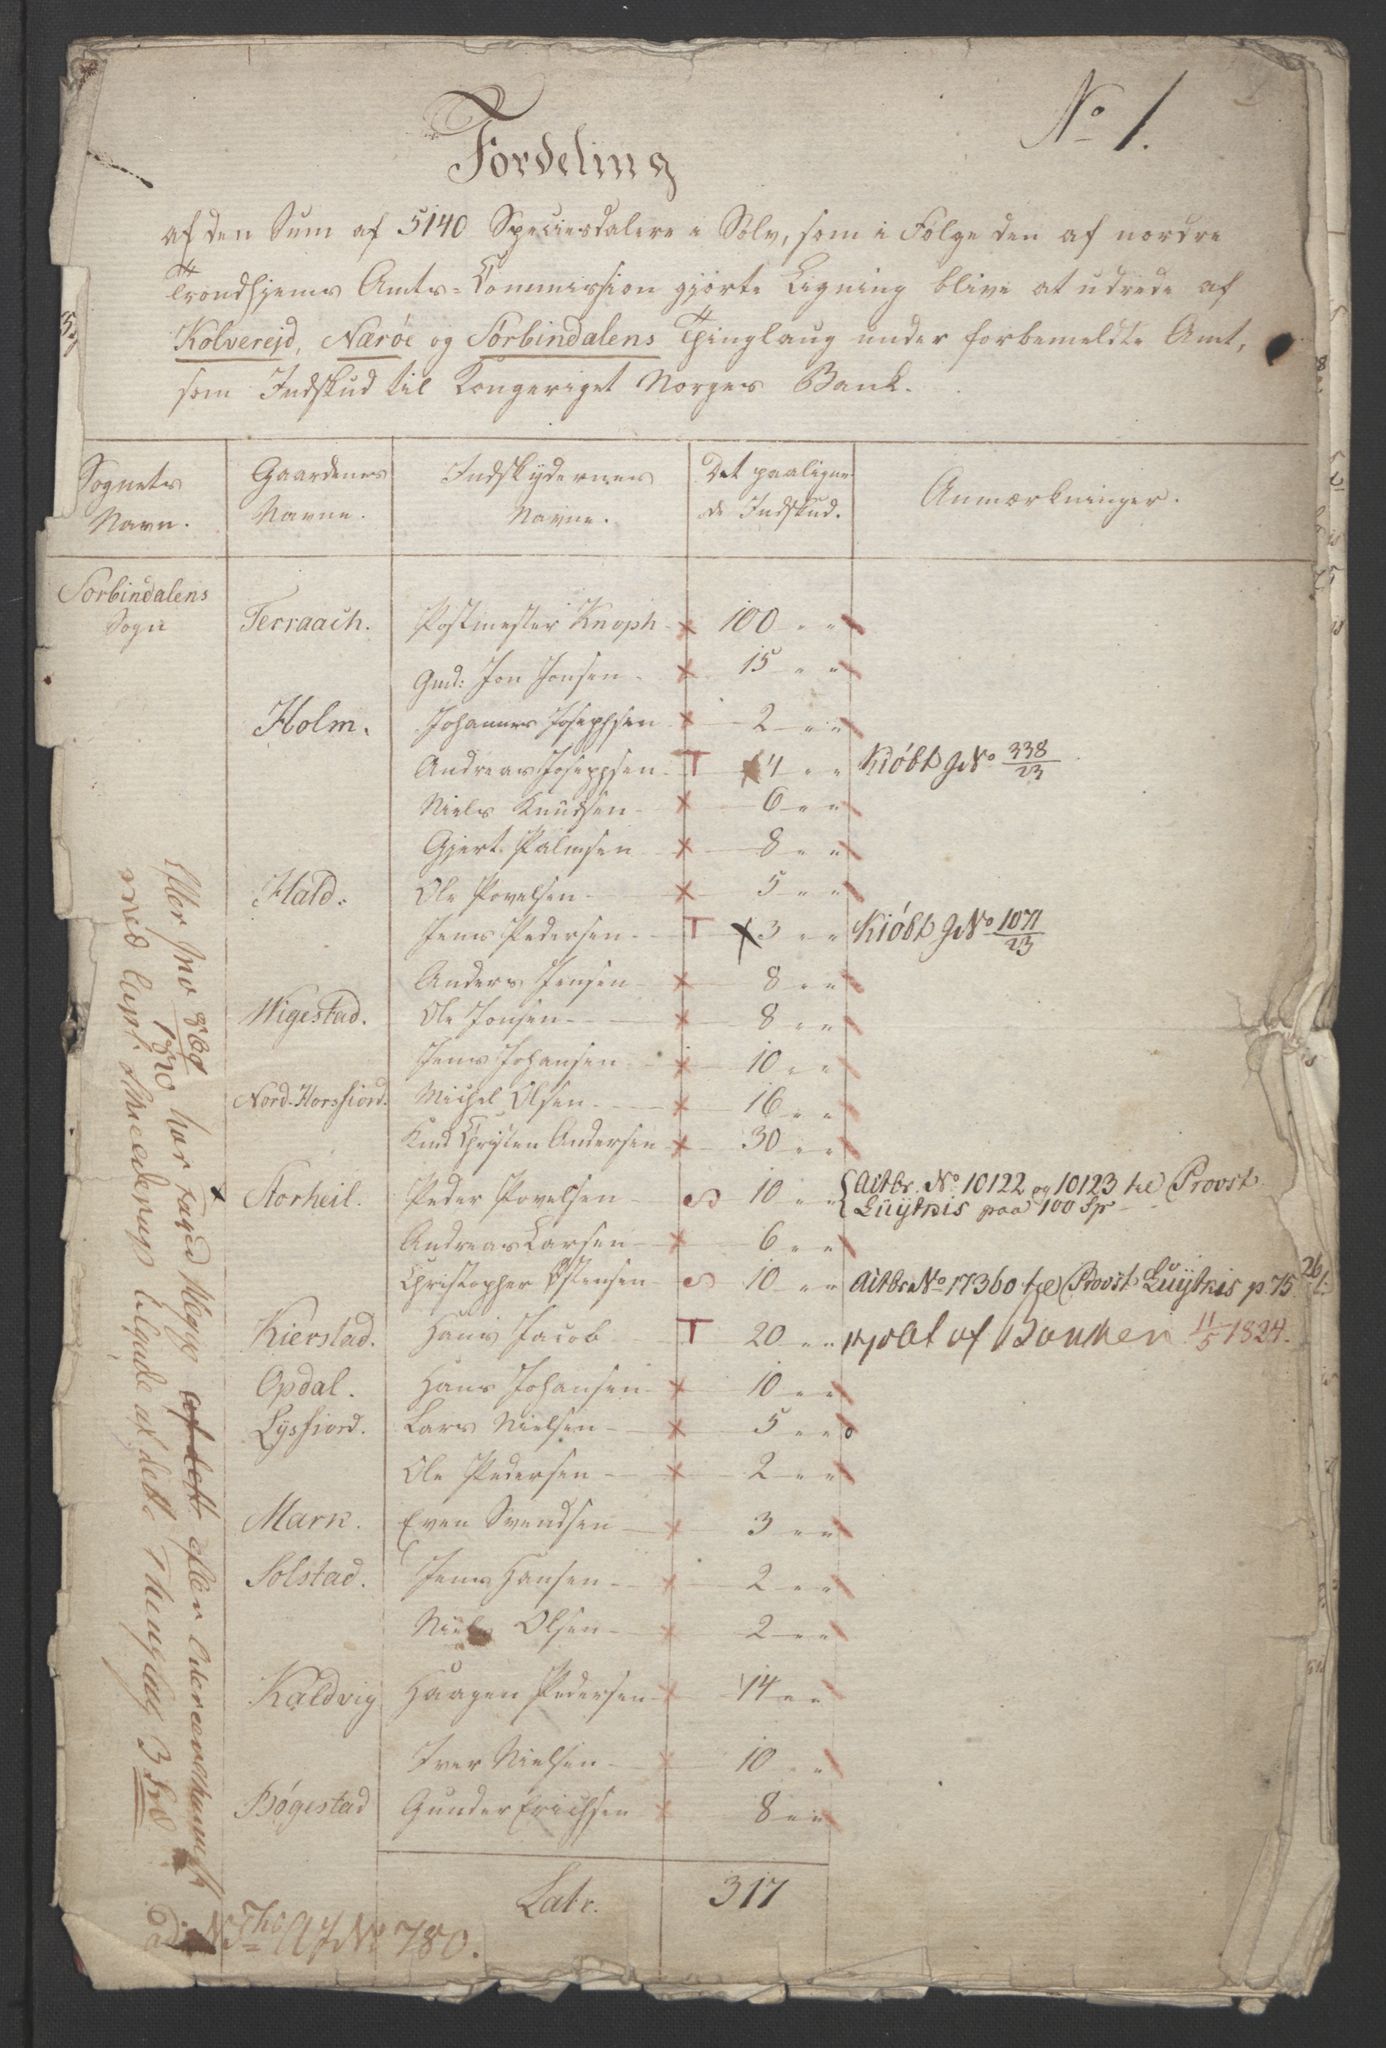 No 1.
Fordeling
af den Sum af 5140 Speciesdalere i Sølv, som i Følge den af nordre
Trondhjems Amts-Commission gjorte Ligning blive at udrede af
Kolverejd, Nærøe og Sørbindalens Thinglaug under forbemeldte Amt,
som Indskud til Kongeriget Norges Bank.
Sognets Navn. Gaardenes Navne. Indskydernes Navne. Det paaligne de Indskud. Anmærkninger.
Sørbindalens Sogn Terraach. Postmester Knoph x 100 " "
Gmd: Jon Jonsen x 15 " "
Holm. Johannes Josephsen x 2 " "
Andreas Josephsen T 4 " " Kiöbt JNo 338/23
Niels Knudsen x 6 " "
Gjert Palmsen x 8 " "
Hald. Ole Povelsen x 5 " "
Jens Pedersen T x 3 " " Kiöbt JNo 1071/23
Anders Jensen x 8 " "
Wigestad. Ole Jonsen x 8 " "
Jens Johansen x 10 " "
Nord-Horsfiord. Michel Olsen x 16 " "
Kmd Christen Andersen x 30 " "
Storheil. Peder Povelsen 10 " " Actbr. No 10122 og 10123 til Provst
paa 100 Sp
Andreas Larsen x 6 " "
Christopher Østensen 10 " " Actbr No 17360 til Provst p. 75
Kierstad. Hans Jacob T 20 " " kjøbt af Banken 11/5 1824.
Opdal. Hans Johansen x 10 " "
Lysfiord. Lars Nielsen x 5 " "
Ole Pedersen x 2 " "
Mark. Even Svendsen x 3 " "
Solstad. Jens Hansen x 2 " "
Niels Olsen x 2 " "
Kaldvig Haagen Pedersen x 14 " "
Iver Nielsen x 10 " "
Bøgestad Gunder Erichsen x 8 " "
Latr. 317
Efter Jno 869/1820 har efter
med af dette Thinglag 3
No 780.